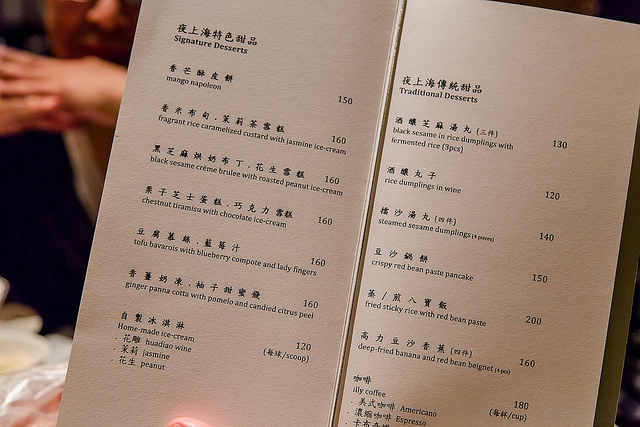 夜上海特色甜品
Signature Desserts
香芒酥皮餅
mango napoleon
150
香米布甸．茉莉茶雪糕
160
fragrant rice caramelized custard with jasmine ice-cream
黑芝麻烘奶布丁．花生雪糕
160
black sesame crème brulee with roasted peanut ice-cream
栗子芝士蛋糕．巧克力雪糕
160
chestnut tiramisu with chocolate ice-cream
豆腐慕絲．藍莓汁
160
tofu bavarois with blueberry compote and lady fingers
香薑奶凍．柚子甜蜜餞
160
ginger panna cotta with pomelo and candied citrus peel
自製冰淇淋
120
Home-made ice-cream
(每球/scoop)
．花雕 huadiao wine
．茉莉 jasmine
．花生 peanut
夜上海傳統甜品
Traditional Desserts
酒釀芝麻湯丸 (三件)
130
black sesame in rice dumplings with
fermented rice (3pcs)
酒釀丸子
120
rice dumplings in wine
擂沙湯丸 (四件)
140
steamed sesame dumplings (4 pieces)
豆沙鍋餅
150
crispy red bean paste pancake
蒸/煎八寶飯
200
fried sticky rice with red bean paste
高力豆沙香蕉 (四件)
160
deep-fried banana and red bean beignet (4 pcs)
咖啡
180
illy coffee
(每杯/cup)
．美式咖啡 Americano
．濃縮咖啡 Espresso